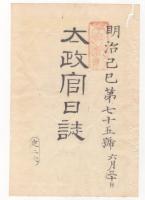 明治己巳第七十五號 六月三十日
太政官日誌